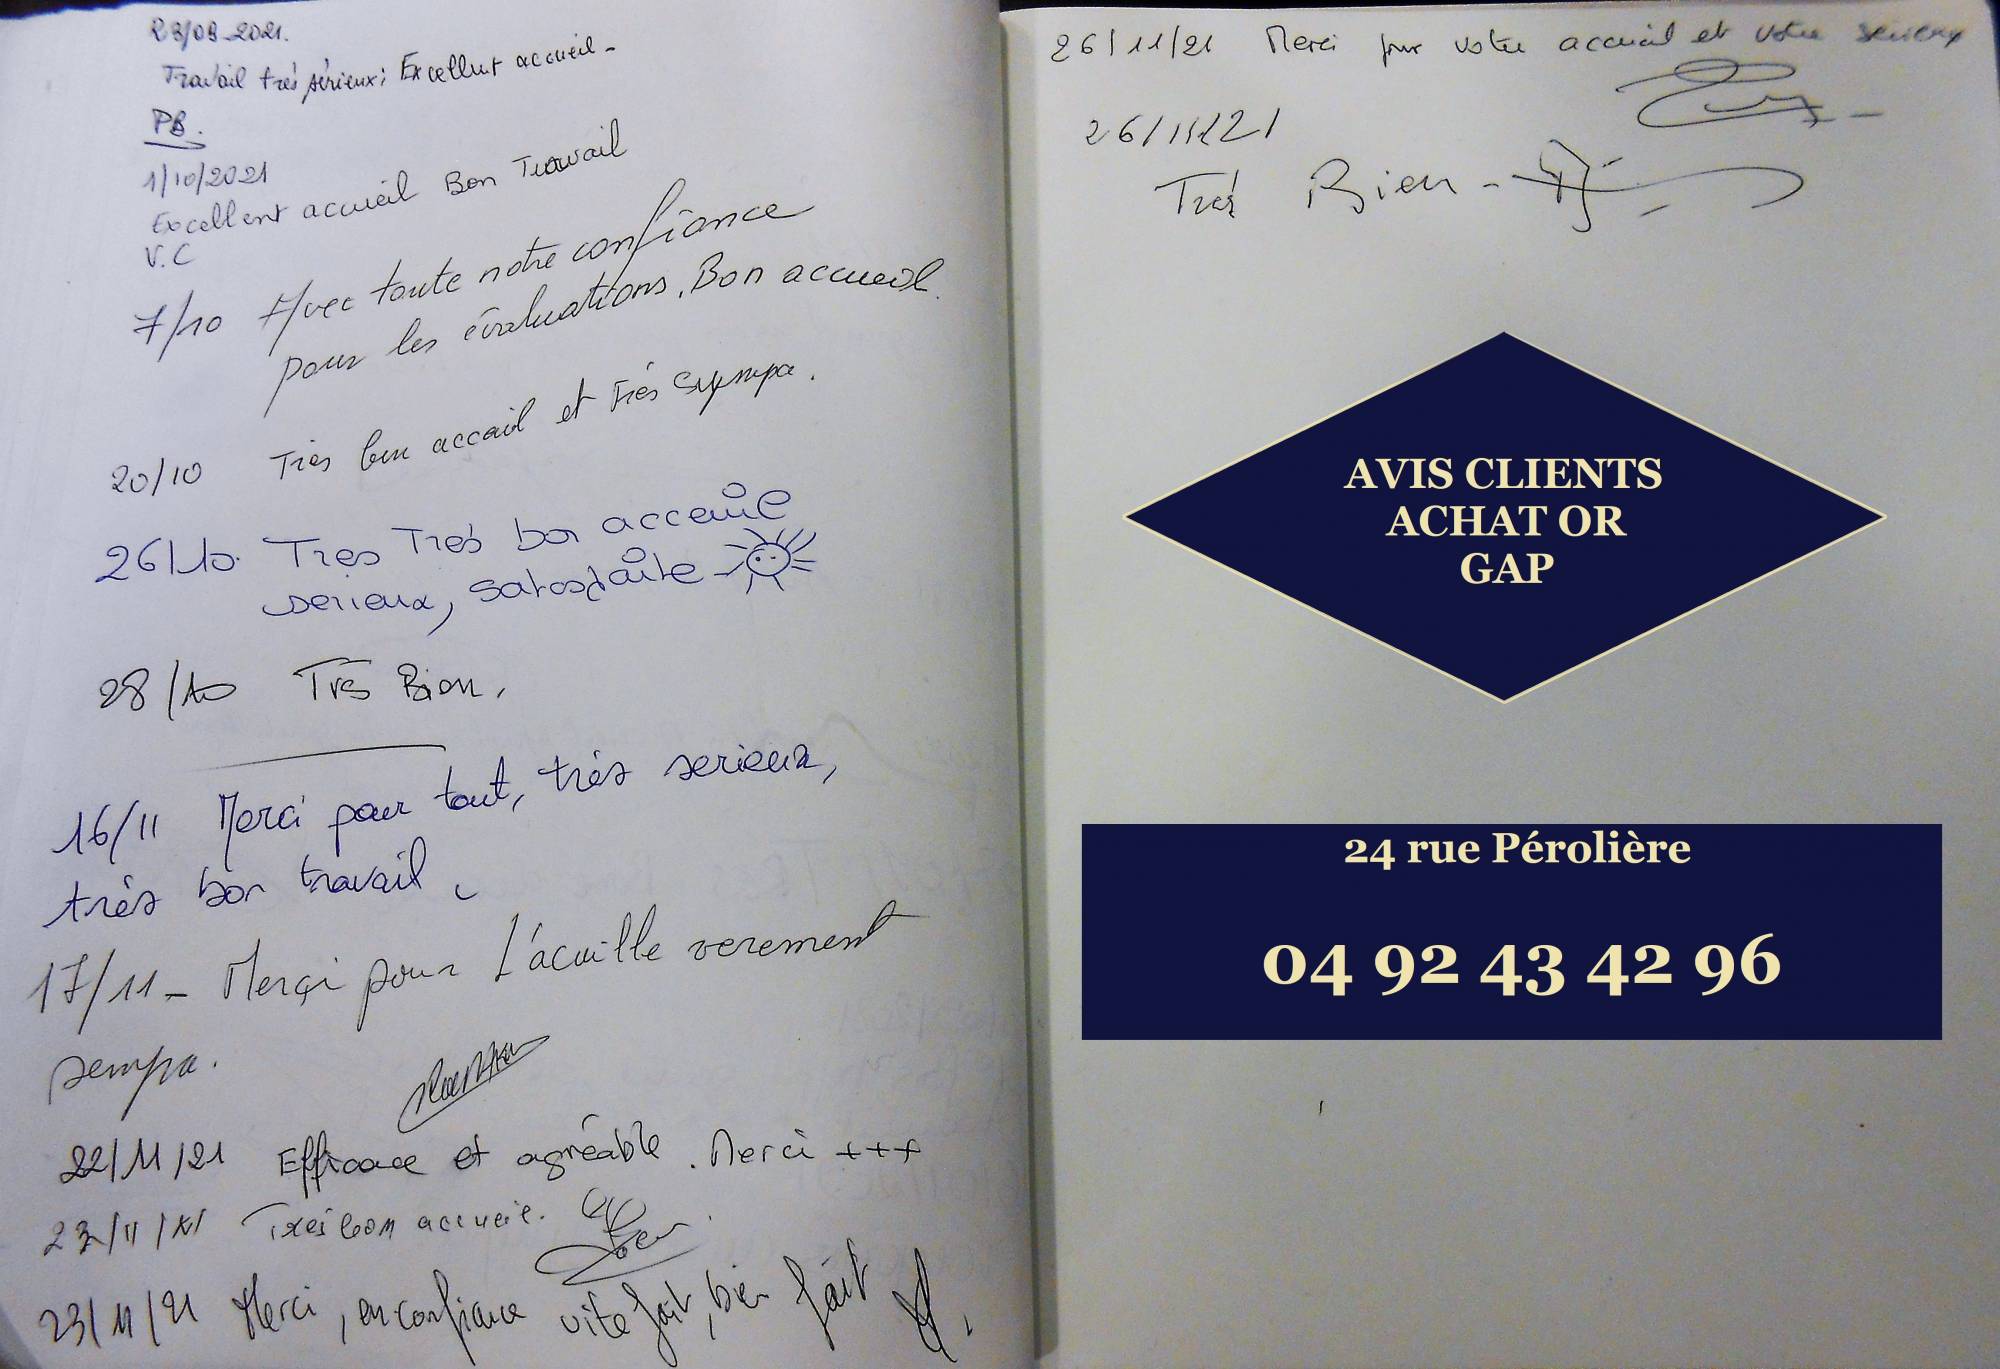 23/09-2021.
Travail très sérieux; Excellent accueil-
PB.
1/10/2021
Excellent accueil Bon Travail
V.C
7/10 Avec toute notre confiance
pour les évaluations. Bon accueil.
20/10 Très bon accueil et très sympa.
26/10. Tres Très bon acceuile
serieux, satisfaite
28/10 Trs Bien.
16/11 Merci pour tout, très serieux,
très bon travail.
17/11 - Merçi pour L'acuille verement
sempa.
22/11/21 Efficace et agréable. Merci +++
23/11/21 Très bon accueil.
23/11/21 Merci, en confiance vite fait, bien fait
26/11/21 Merci pour votre accueil et votre serieux
26/11/21
Très Bien -
AVIS CLIENTS
ACHAT OR
GAP
24 rue Pérolière
04 92 43 42 96